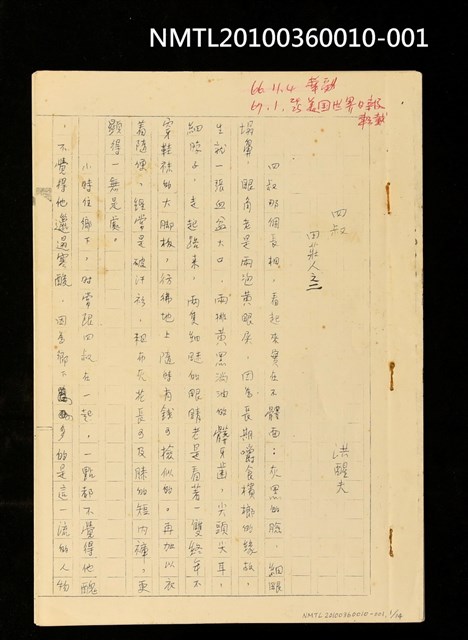 NMTL20100360010-001
66.11.4 華副
67.1. 美国世界日報
轉載
四叔
田莊人之二
洪醒夫
四叔那個長相,看起來實在不體面:灰黑的臉,細眼
塌鼻,眼角老是兩泡黃眼屎,因為長期嚼食檳榔的緣故,
生就一張血盆大口,兩排黃黑油油的髒牙齒,尖頭尖耳,
細脖子,走起路來,兩隻細眯的眼睛老是看著一雙終年不
穿鞋襪的大脚板,彷彿地上隨時有錢可撿似的。再加以衣
著隨便,經常是破汗衫,粗布灰茬長可及膝的短內褲,更
顯得一無是處。
小時住鄉下,時常跟四叔在一起,一點都不覺得他醜
,不覺得他邋遢寒酸,因為鄉下多的是這一流的人物
NMTL20100360010-001, 1/24